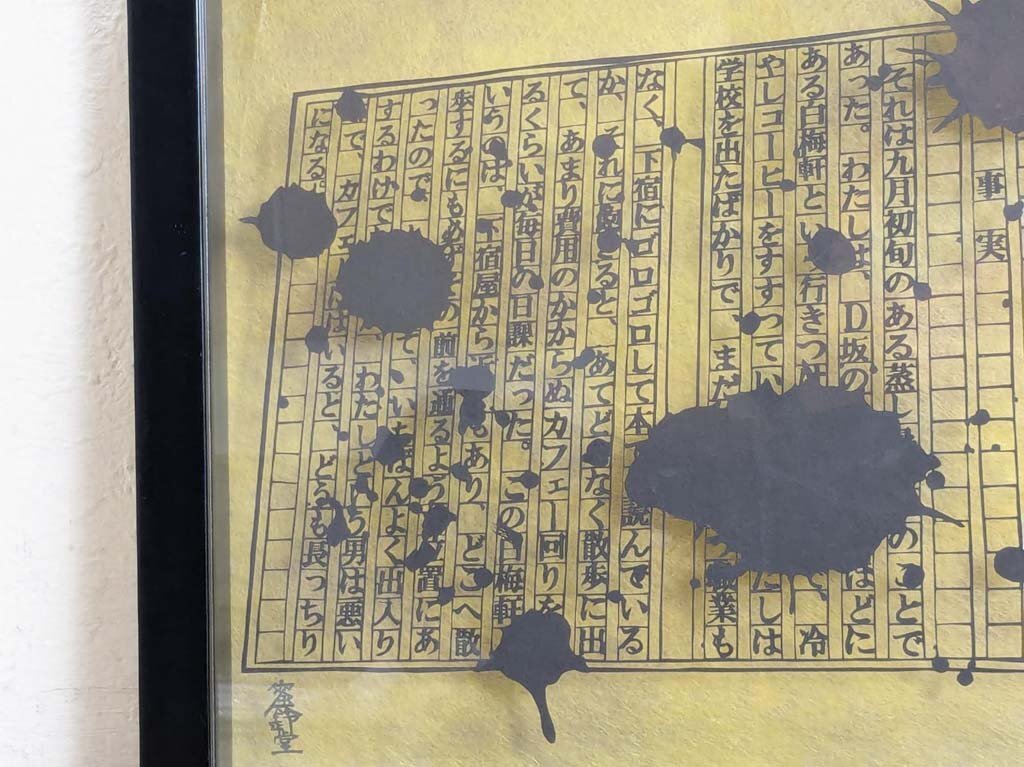 事実
それは九月初旬のある蒸し のことで
あった。わたしは、D坂の ほどに
ある白梅軒とい 行きつ 、冷
やしコーヒーをすすってい たしは
学校を出たばかりで、まだ 職業も
なく、下宿にゴロゴロして本 読んでいる
か、それに飽きると、あてどなく散歩に出
て、あまり費用のかからぬカフェー回りを
るくらいが毎日の日課だった。この白梅軒
いうのは、下宿屋から もあり、どこへ散
歩するにも必ず の前を通るような位置にあ
ったので、 て、いちばんよく出入り
するわけで わたしと 男は悪い
で、カフェ はいると、どうも長っちり
になる